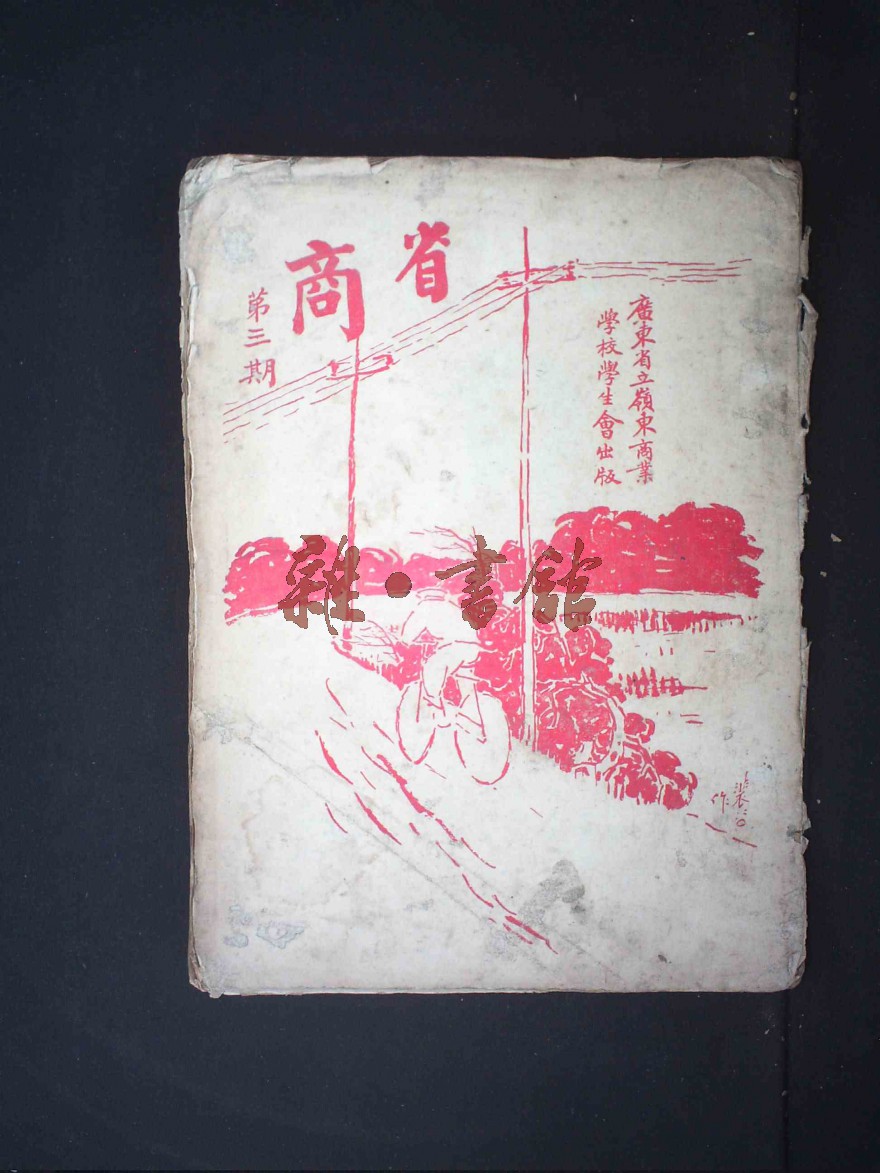 省商
第三期
廣東省立嶺東商業
學校學生會出版
雜·書館
作